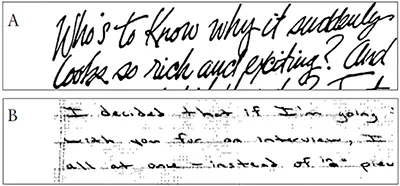 A
Who's to know why it suddenly
looks so rich and exciting? And
B
I decided that if I'm going
with you for an interview, I
all at one - instead of 12" piec